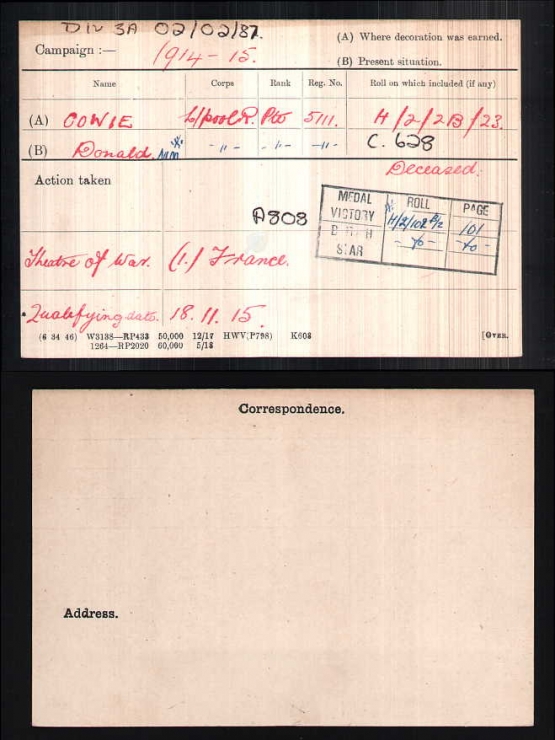 DIV 3A 02/02/87.
Campaign :— 1914-15.
(A) Where decoration was earned.
(B) Present situation.
Name Corps Rank Reg. No. Roll on which included (if any)
(A) COWIE L/pool R. Pte 5111. H/2/2B/23.
(B) Donald. MM * -"- -"- -"- C. 628
Deceased.
Action taken
MEDAL ROLL PAGE
VICTORY * H/2/102 B/2 101
B T H -do- -do-
STAR
A808
Theatre of War. (1.) France.
Qualifying date. 18.11.15.
(6 34 46) W3138—RP433 50,000 12/17 HWV(P798) K608 [OVER.
1264—RP2020 60,000 5/18
Correspondence.
Address.